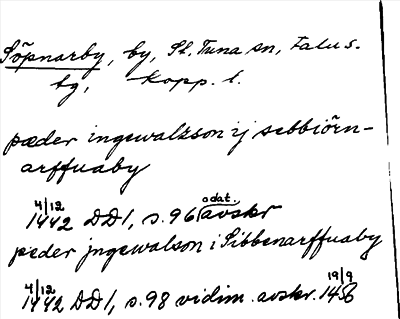 Söpnarby, by, St. Tuna sn, Falu s.
bg, Kopp. l.
pæder ingewalzson ij sebbiörn-
arffuaby
4/12 1442 DD1, s. 96 odat. avskr
pæder jngewalson i Sibbenarffuaby
4/12 1442 DD1, s. 98 vidim. avskr. 19/9